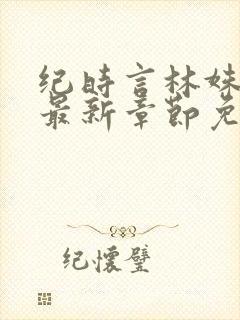 纪时言林妹
最新章节免
纪怀璧